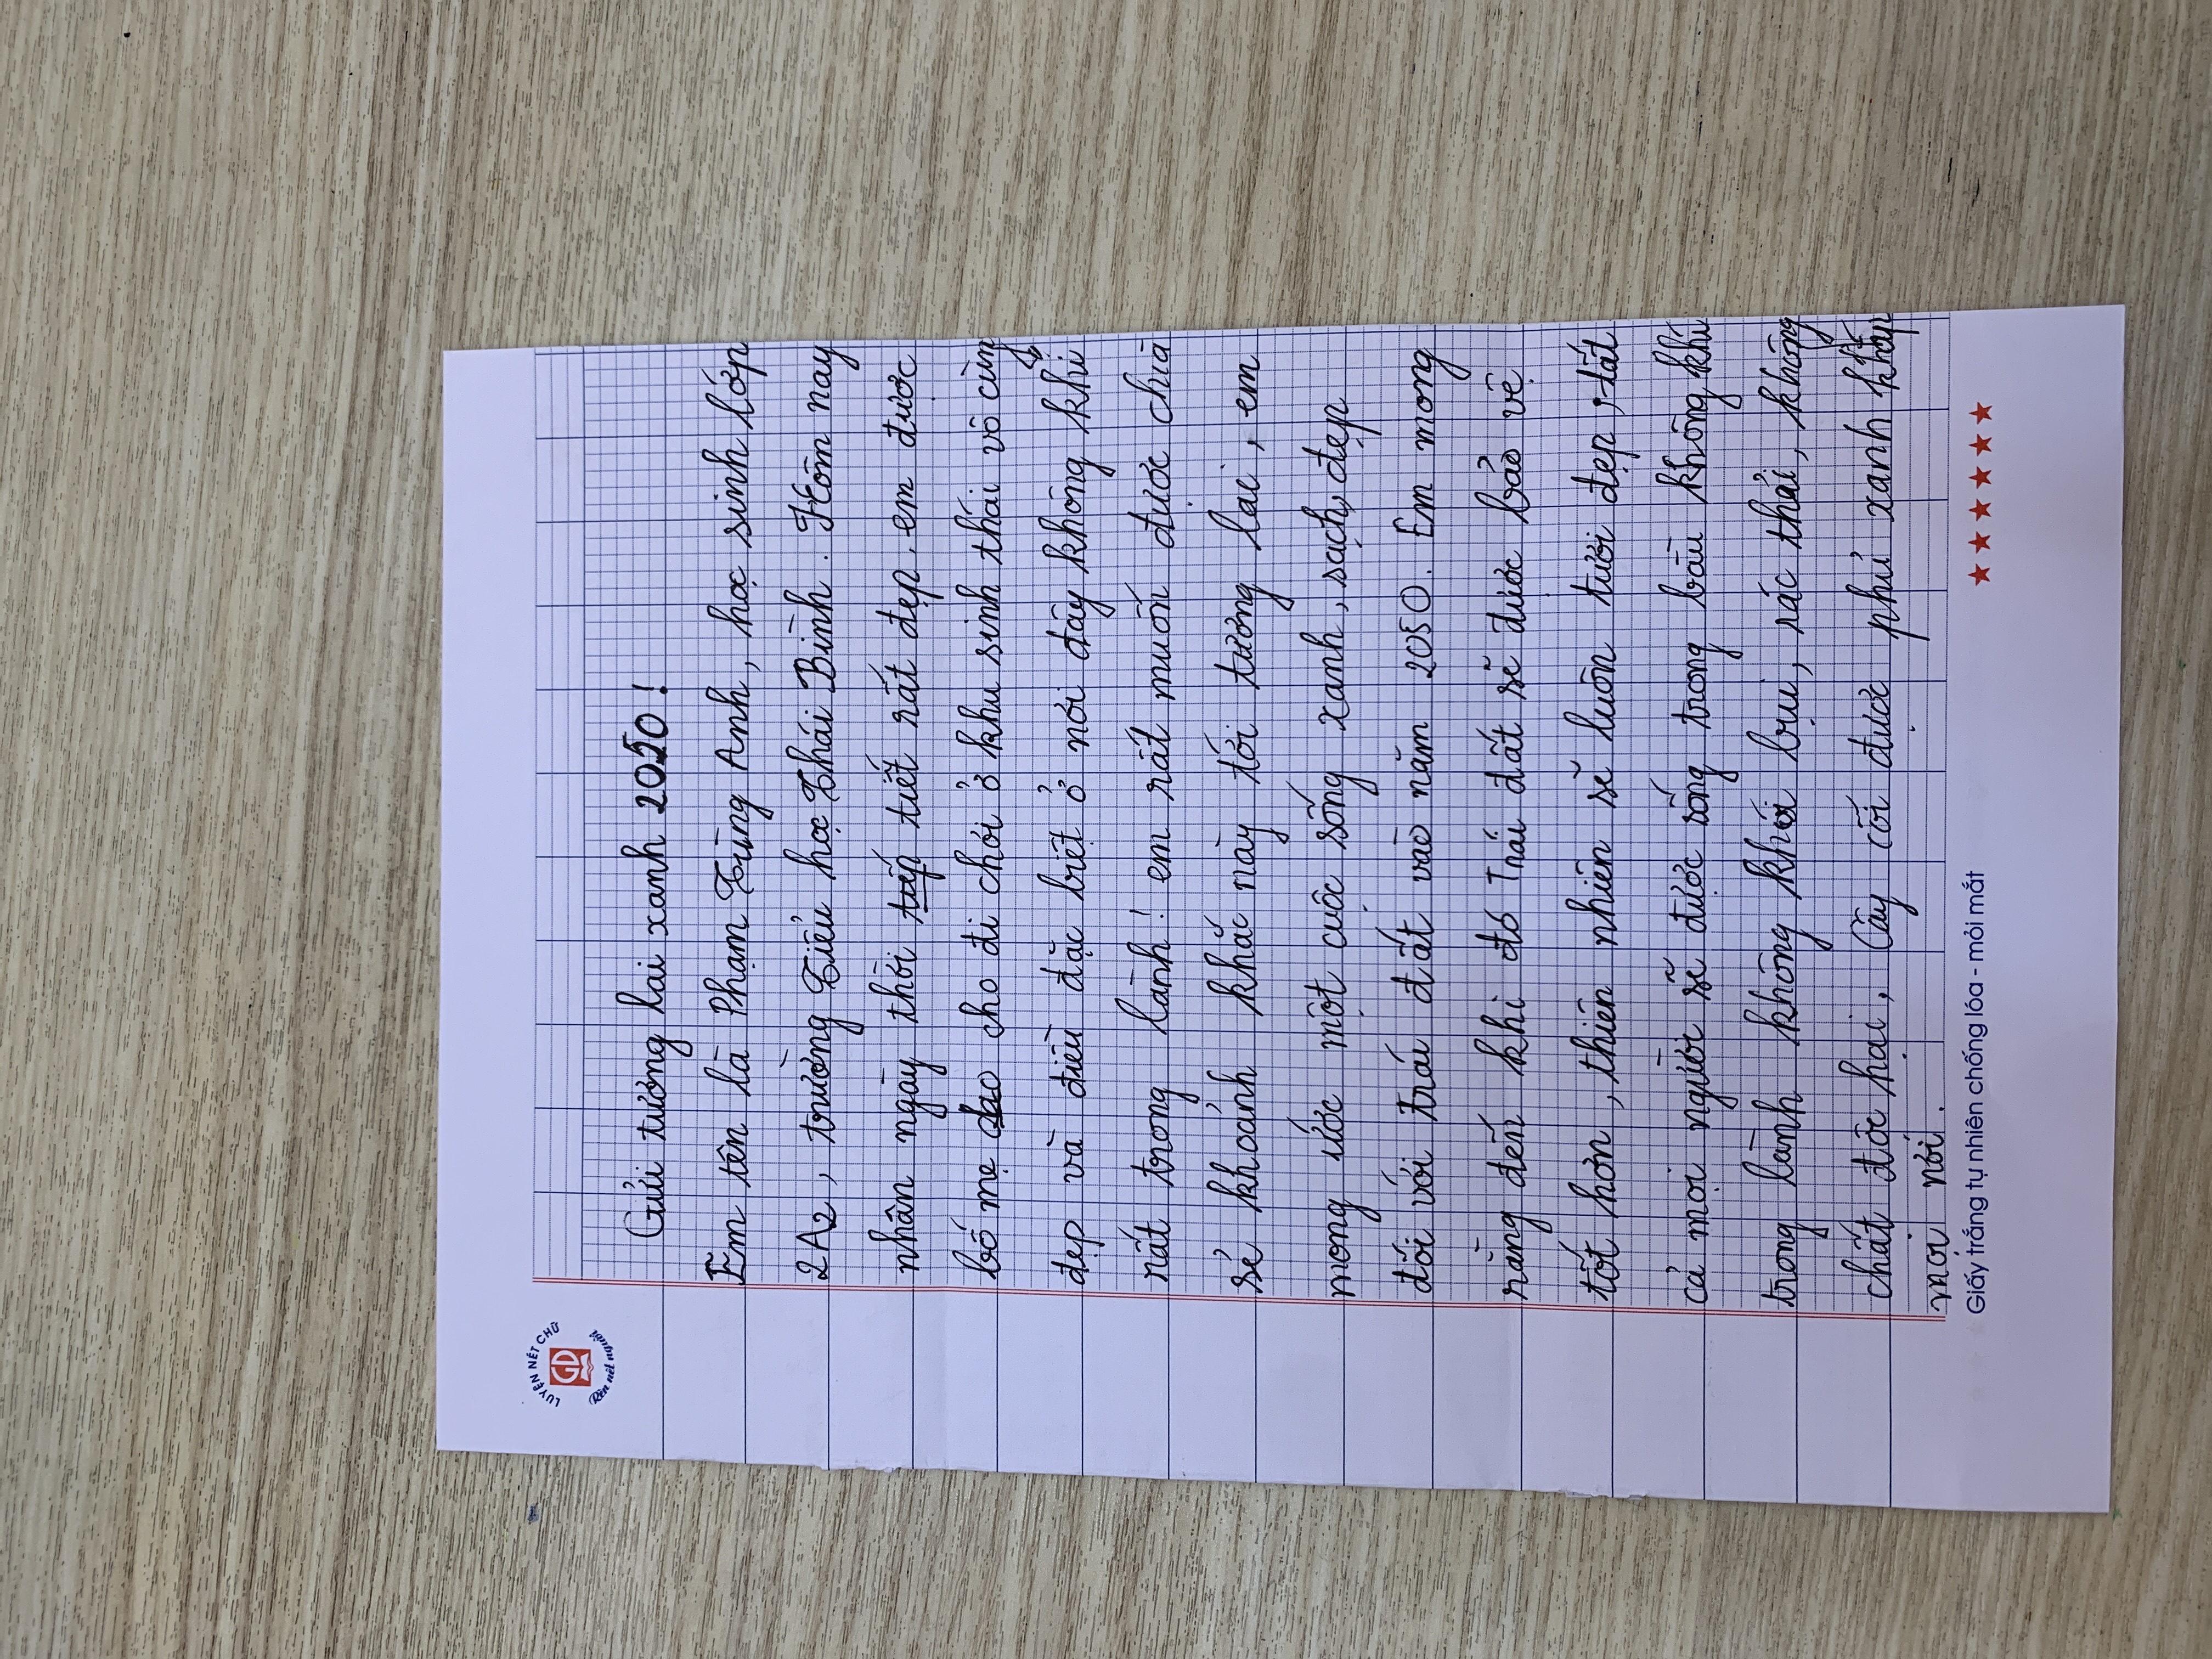 LUYỆN NÉT CHỮ
GD
Rèn nết người
Gửi tương lai xanh 2050!
Em tên là Phạm Tùng Anh, học sinh lớp
2A2, trường Tiểu học Thái Bình. Hôm nay
nhân ngày thời tiết rất đẹp, em được
bố mẹ cho đi chơi ở khu sinh thái vô cùng
đẹp và điều đặc biệt ở nơi đây không khí
rất trong lành! em rất muốn được chia
sẻ khoảnh khắc này tới tương lai, em
mong ước một cuộc sống xanh, sạch, đẹp
đối với trái đất vào năm 2050. Em mong
rằng đến khi đó Trái đất sẽ được bảo vệ
tốt hơn, thiên nhiên sẽ luôn tươi đẹp, tất
cả mọi người sẽ được sống trong bầu không khí
trong lành không khói bụi, rác thải, không
chất độc hại, Cây cối được phủ xanh khắp
mọi nơi.
Giấy trắng tự nhiên chống lóa - mỏi mắt